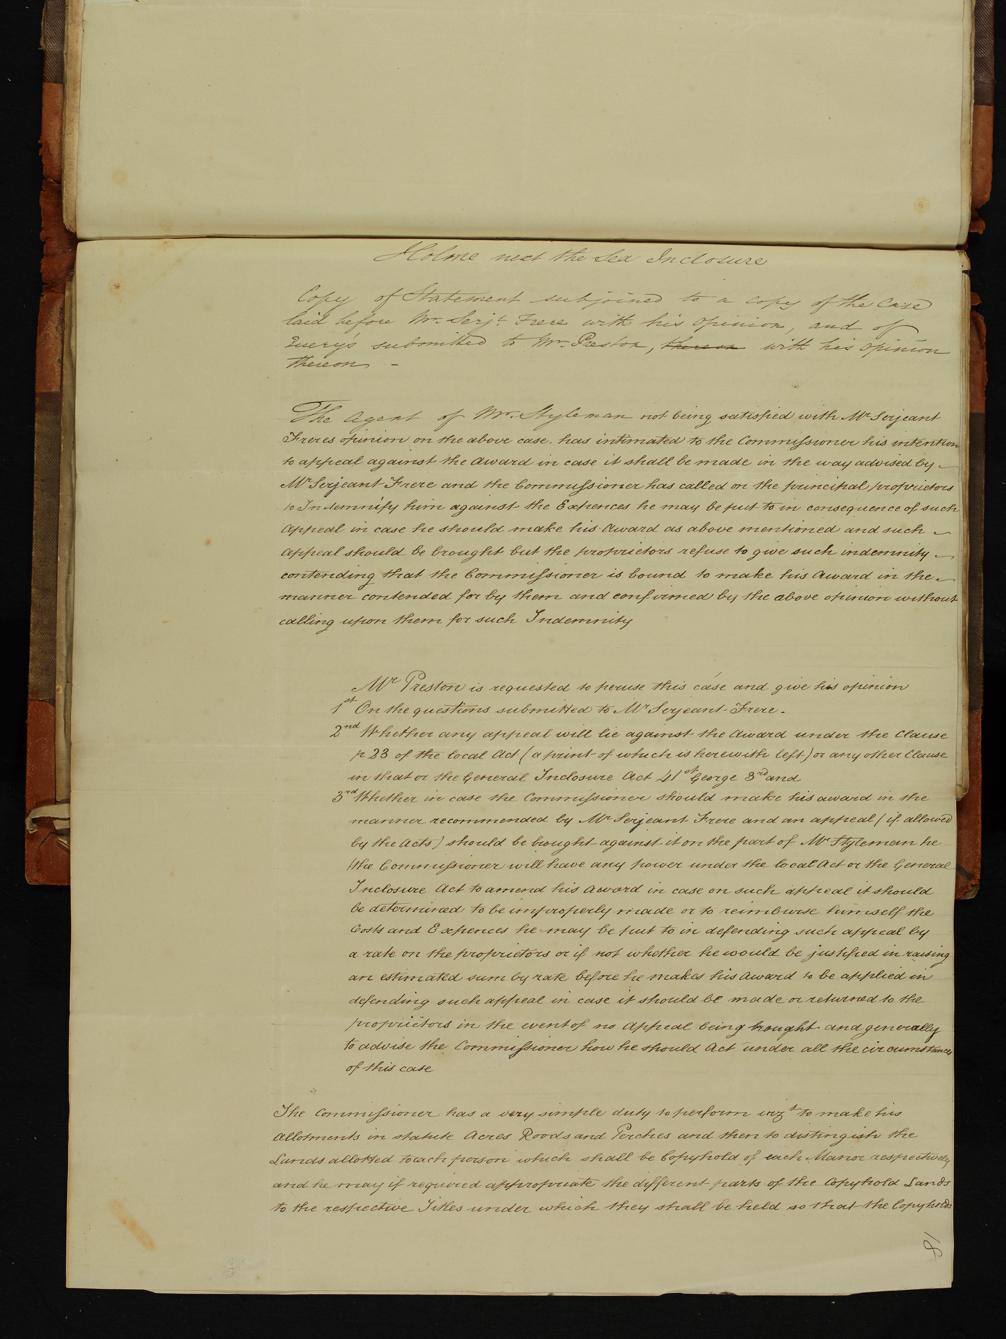 Holme next the Sea Inclosure
Copy of Statement subjoined to a copy of the Case
laid before Mr. Serjt. Frere with his Opinion, and of
Query's submitted to Mr. Preston, thereon with his Opinion
thereon -
The Agent of Mr. Styleman not being satisfied with Mr Serjeant
Freres opinion on the above case has intimated to the Commissioner his intention
to appeal against the Award in case it shall be made in the way advised by
Mr Serjeant Frere and the Commissioner has called on the principal proprietors
to Indemnify him against the Expences he may be put to in consequence of such
Appeal in case he should make his Award as above mentioned and such
appeal should be brought but the proprietors refuse to give such indemnity
contending that the Commissioner is bound to make his Award in the
manner contended for by them and confirmed by the above opinion without
calling upon them for such Indemnity
Mr Preston is requested to peruse this case and give his opinion
1st On the questions submitted to Mr Serjeant Frere.
2nd Whether any appeal will lie against the Award under the Clause
p 23 of the local Act (a print of which is herewith left) or any other Clause
in that or the General Inclosure Act 41st George 3rd and
3rd Whether in case the Commissioner should make his award in the
manner recommended by Mr Serjeant Frere and an appeal (if allowed
by the Acts) should be brought against it on the part of Mr Styleman he
(the Commissioner will have any power under the local Act or the General
Inclosure Act to amend his Award in case on such appeal it should
be determined to be improperly made or to reimburse himself the
Costs and Expences he may be put to in defending such appeal by
a rate on the proprietors or if not whether he would be justified in raising
an estimated sum by rate before he makes his Award to be applied in
defending such appeal in case it should be made or returned to the
proprietors in the event of no Appeal being brought and generally
to advise the Commissioner how he should Act under all the circumstances
of this case
The Commissioner has a very simple duty to perform vizt to make his
allotments in statute Acres Roods and Perches and then to distingish the
Lands allotted to each person which shall be Copyhold of each Manor respectively
and he may if required appropriate the different parts of the Copyhold Lands
to the respective Titles under which they shall be held so that the Copyholds